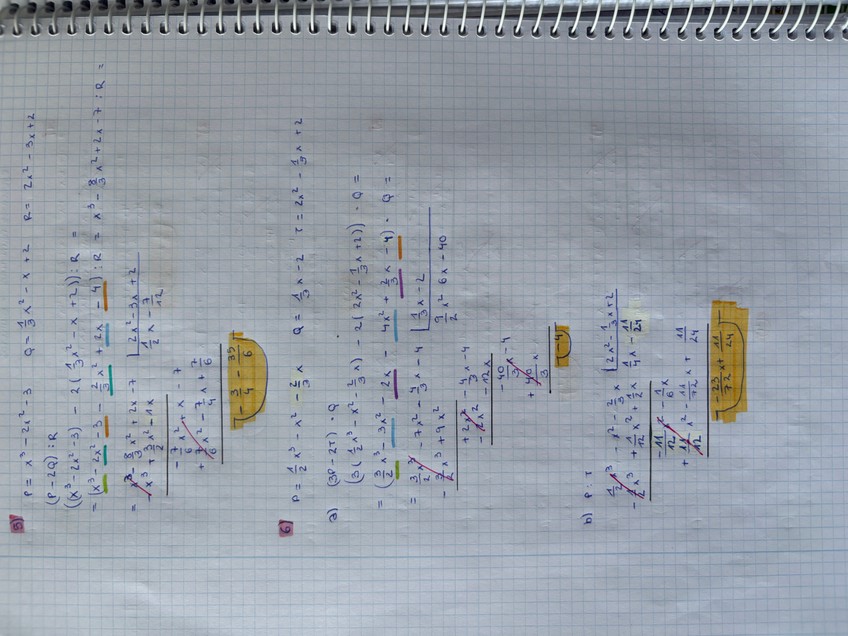 5) P = x³ - 2x² - 3 Q = 1/3 x² - x + 2 R = 2x² - 3x + 2
(P - 2Q) : R
((x³ - 2x² - 3) - 2(1/3 x² - x + 2)) : R =
= (x³ - 2x² - 3 - 2/3 x² + 2x - 4) : R = x³ - 8/3 x² + 2x - 7 : R =
= x³ - 8/3 x² + 2x - 7 | 2x² - 3x + 2
- x³ + 3/2 x² - 1x 1/2 x - 7/12
- 7/6 x² + x - 7
+ 7/6 x² - 7/4 x + 7/6
- 3/4 - 35/6
6) P = 1/2 x³ - x² - 2/3 x Q = 1/3 x - 2 T = 2x² - 1/3 x + 2
a) (3P - 2T) · Q
(3(1/2 x³ - x² - 2/3 x) - 2(2x² - 1/3 x + 2)) · Q =
= (3/2 x³ - 3x² - 2x - 4x² + 2/3 x - 4) · Q =
= 3/2 x³ - 7x² - 4/3 x - 4 | 1/3 x - 2
- 3/2 x³ + 9x² 9/2 x² 6x - 40
+ 2x² - 4/3 x - 4
- 2x² - 12x
- 40/3 x - 4
+ 40/3 x
- 4
b) P : T
1/2 x³ - x² - 2/3 x | 2x² - 1/3 x + 2
- 1/2 x³ + 1/12 x² + 1/2 x 1/4 x - 11/24
- 11/12 x² - 1/6 x
+ 11/12 x² - 11/72 x + 11/24
- 23/72 x + 11/24